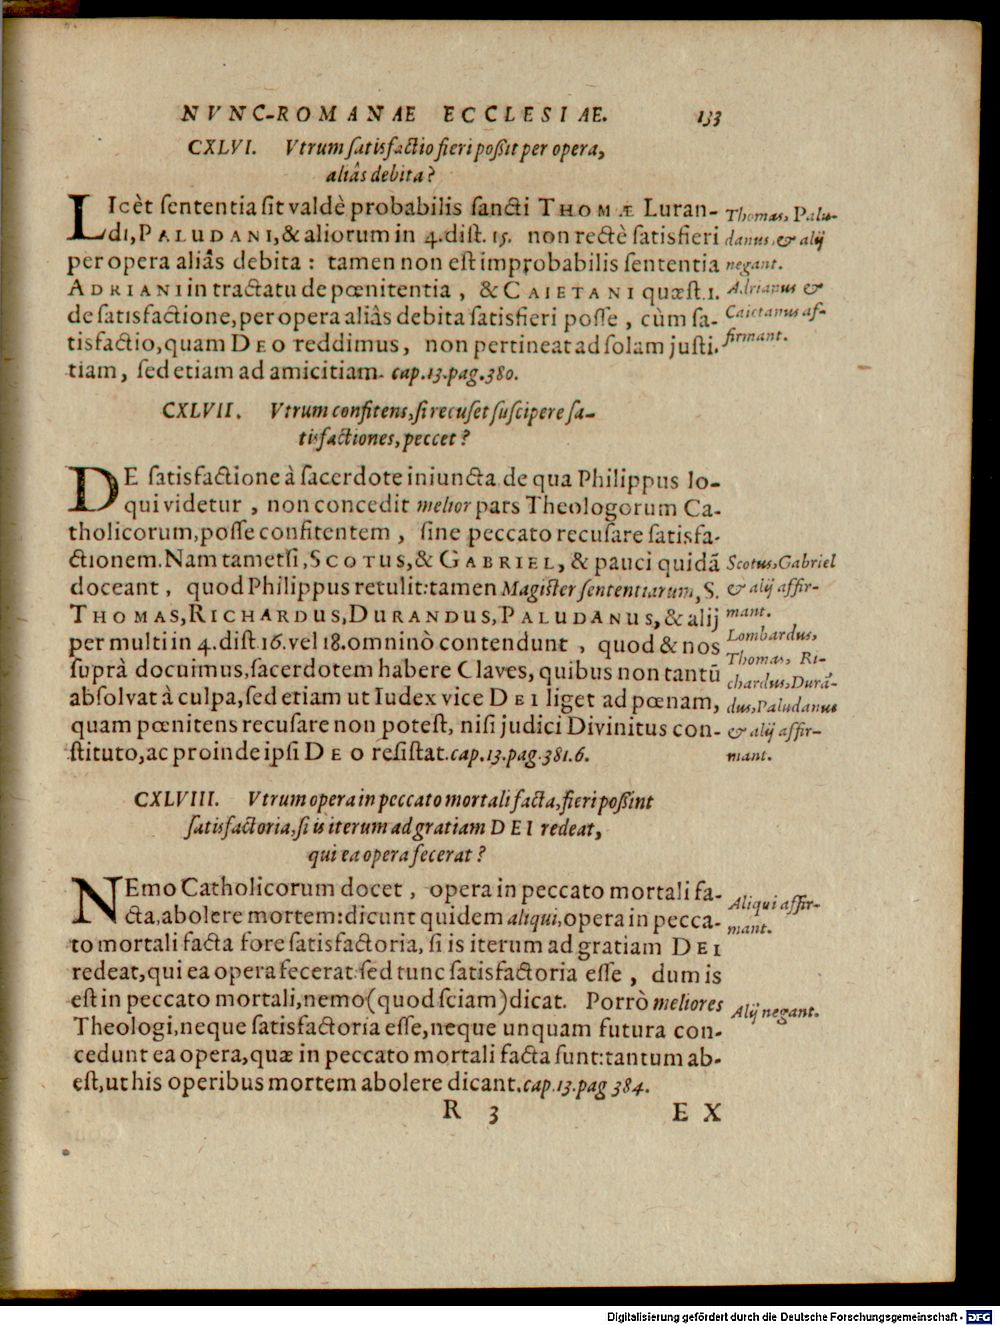 NVNC-ROMANAE ECCLESIAE. 133
CXLVI. Vtrum satisfactio fieri possit per opera,
aliâs debita?
LIcèt sententia sit valdè probabilis sancti THOMÆ Luran-
di, PALUDANI, & aliorum in 4. dist. 15. non rectè satisfieri
per opera aliâs debita: tamen non est improbabilis sententia
ADRIANI in tractatu de pœnitentia, & CAIETANI quæst. 1.
de satisfactione, per opera aliàs debita satisfieri posse, cùm sa-
tisfactio, quam DEO reddimus, non pertineat ad solam justi-
tiam, sed etiam ad amicitiam. cap. 13. pag. 380.
Thomas, Palu-
danus, & alij
negant.
Adrianus &
Caietanus af-
firmant.
CXLVII. Vtrum confitens, si recuset suscipere sa-
tisfactiones, peccet?
DE satisfactione à sacerdote iniuncta de qua Philippus lo-
qui videtur, non concedit melior pars Theologorum Ca-
tholicorum, posse confitentem, sine peccato recusare satisfa-
ctionem. Nam tametsi, SCOTUS, & GABRIEL, & pauci quidã
doceant, quod Philippus retulit: tamen Magister sententiarum, S.
THOMAS, RICHARDUS, DURANDUS, PALUDANUS, & alij
per multi in 4. dist 16. vel 18. omninò contendunt, quod & nos
suprà docuimus, sacerdotem habere Claves, quibus non tantũ
absolvat à culpa, sed etiam ut Iudex vice DEI liget ad pœnam,
quam pœnitens recusare non potest, nisi judici Divinitus con-
stituto, ac proinde ipsi DEO resistat. cap. 13. pag. 381. 6.
Scotus, Gabriel
& alij affir-
mant.
Lombardus,
Thomas, Ri-
chardus, Durã-
dus, Paludanus
& alij affir-
mant.
CXLVIII. Vtrum opera in peccato mortali facta, fieri possint
satisfactoria, si is iterum ad gratiam DEI redeat,
qui ea opera fecerat?
NEmo Catholicorum docet, opera in peccato mortali fa-
cta, abolere mortem: dicunt quidem aliqui, opera in pecca-
to mortali facta fore satisfactoria, si is iterum ad gratiam DEI
redeat, qui ea opera fecerat sed tunc satisfactoria esse, dum is
est in peccato mortali, nemo (quod sciam) dicat. Porrò meliores
Theologi, neque satisfactoria esse, neque unquam futura con-
cedunt ea opera, quæ in peccato mortali facta sunt: tantum ab-
est, ut his operibus mortem abolere dicant. cap. 13. pag 384.
Aliqui affir-
mant.
Alij negant.
R 3 EX
Digitalisierung gefördert durch die Deutsche Forschungsgemeinschaft - DFG